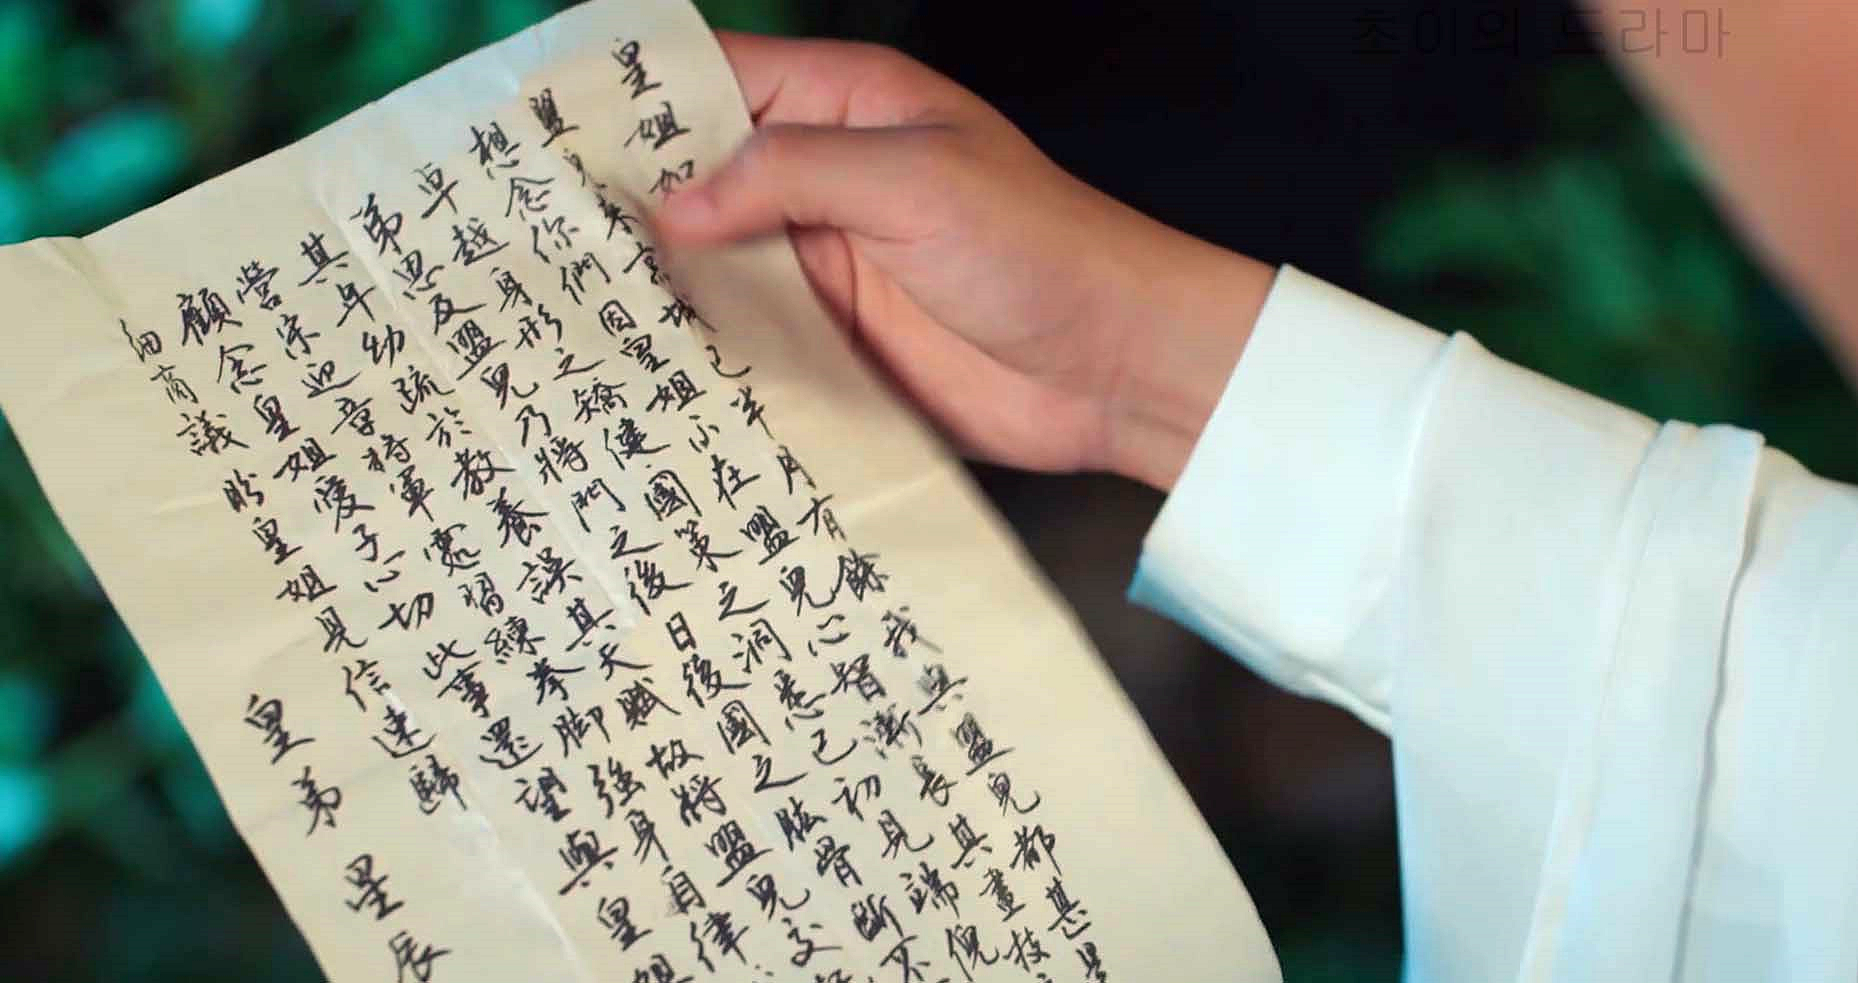 초이의 드라마
皇姐如
盟兒來京城已半月有餘我與盟兒都甚是
想念你們因皇姐不在盟兒心智漸長其畫技
卓越身形之矯健國策之洞悉已初見端倪
弟思及盟兒乃將門之後日後國之肱骨斷不
其年幼疏於教養誤其天賦故將盟兒交
營宗迎章將軍處習練拳腳強身自律
顧念皇姐愛子心切此事還望與皇姐
細商議盼皇姐見信速歸
皇弟 星辰